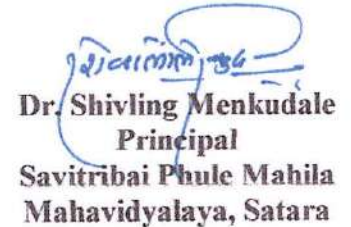 Dr. Shivling Menkudale
Principal
Savitribai Phule Mahila
Mahavidyalaya, Satara